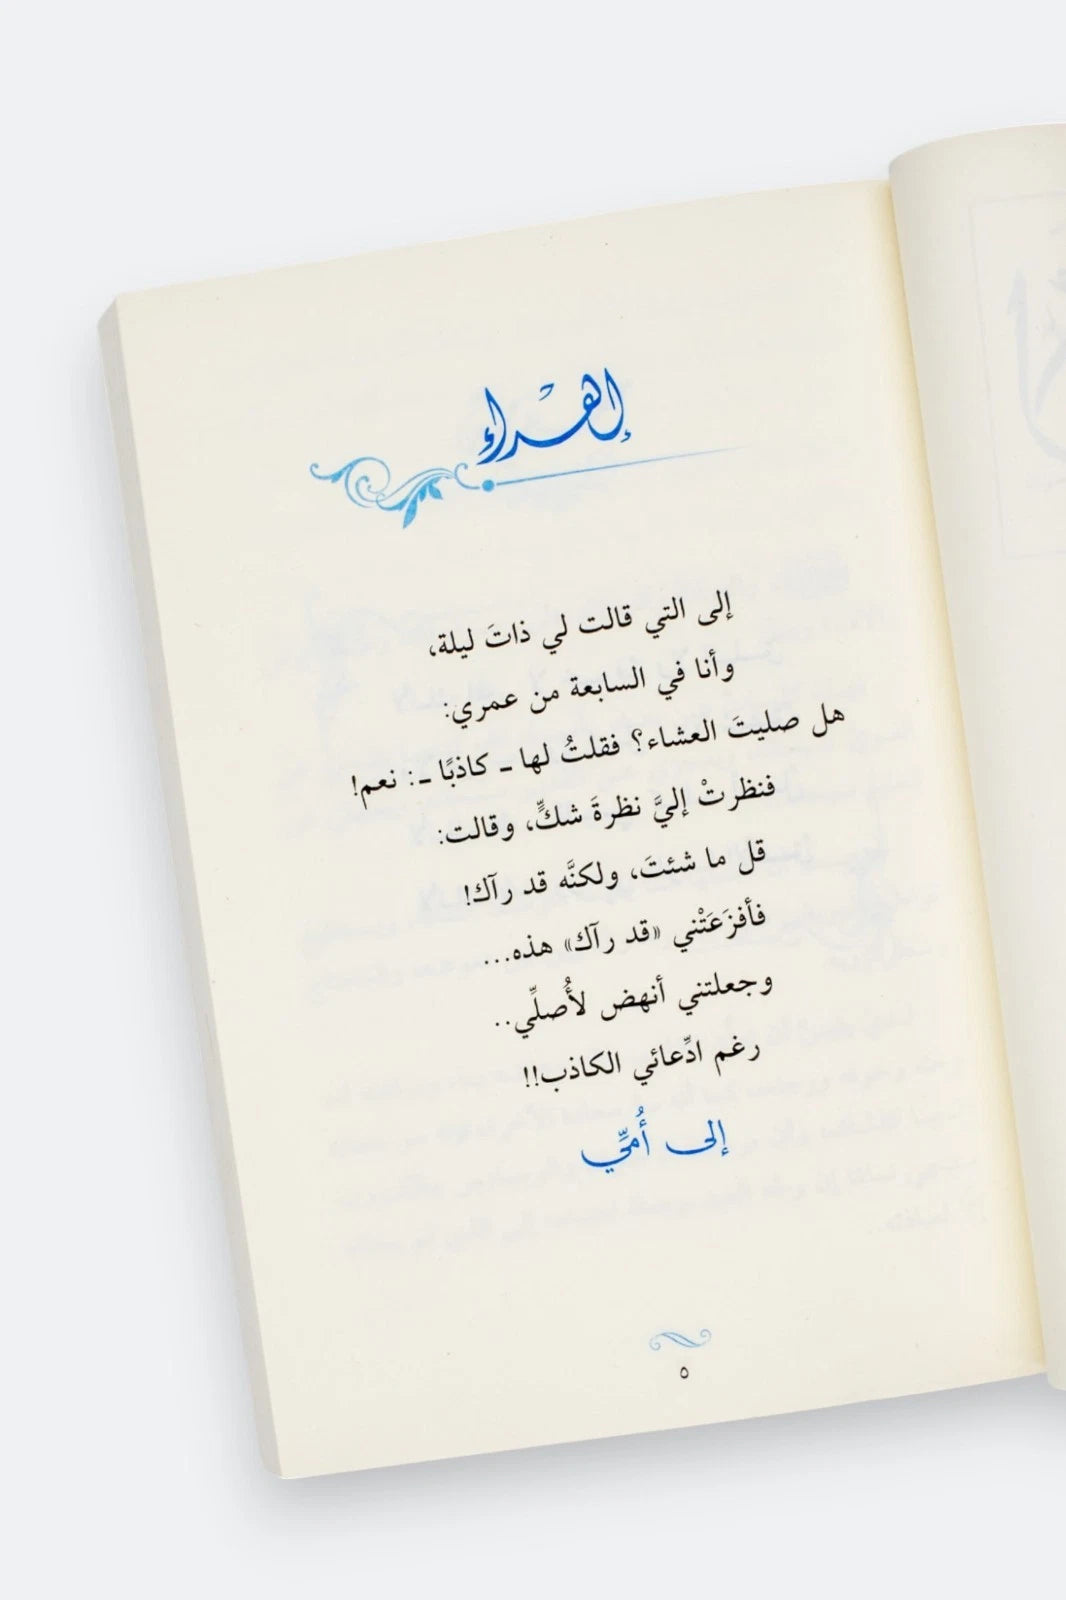 إهداء
إلى التي قالت لي ذاتَ ليلة،
وأنا في السابعة من عمري:
هل صليتَ العشاء؟ فقلتُ لها ـ كاذبًا ـ: نعم!
فنظرتْ إليَّ نظرةَ شكٍّ، وقالت:
قل ما شئتَ، ولكنَّه قد رآك!
فأفزَعَتْني «قد رآك» هذه...
وجعلتني أنهض لأُصلِّي..
رغم ادِّعائي الكاذب!!
إلى أُمِّي
٥